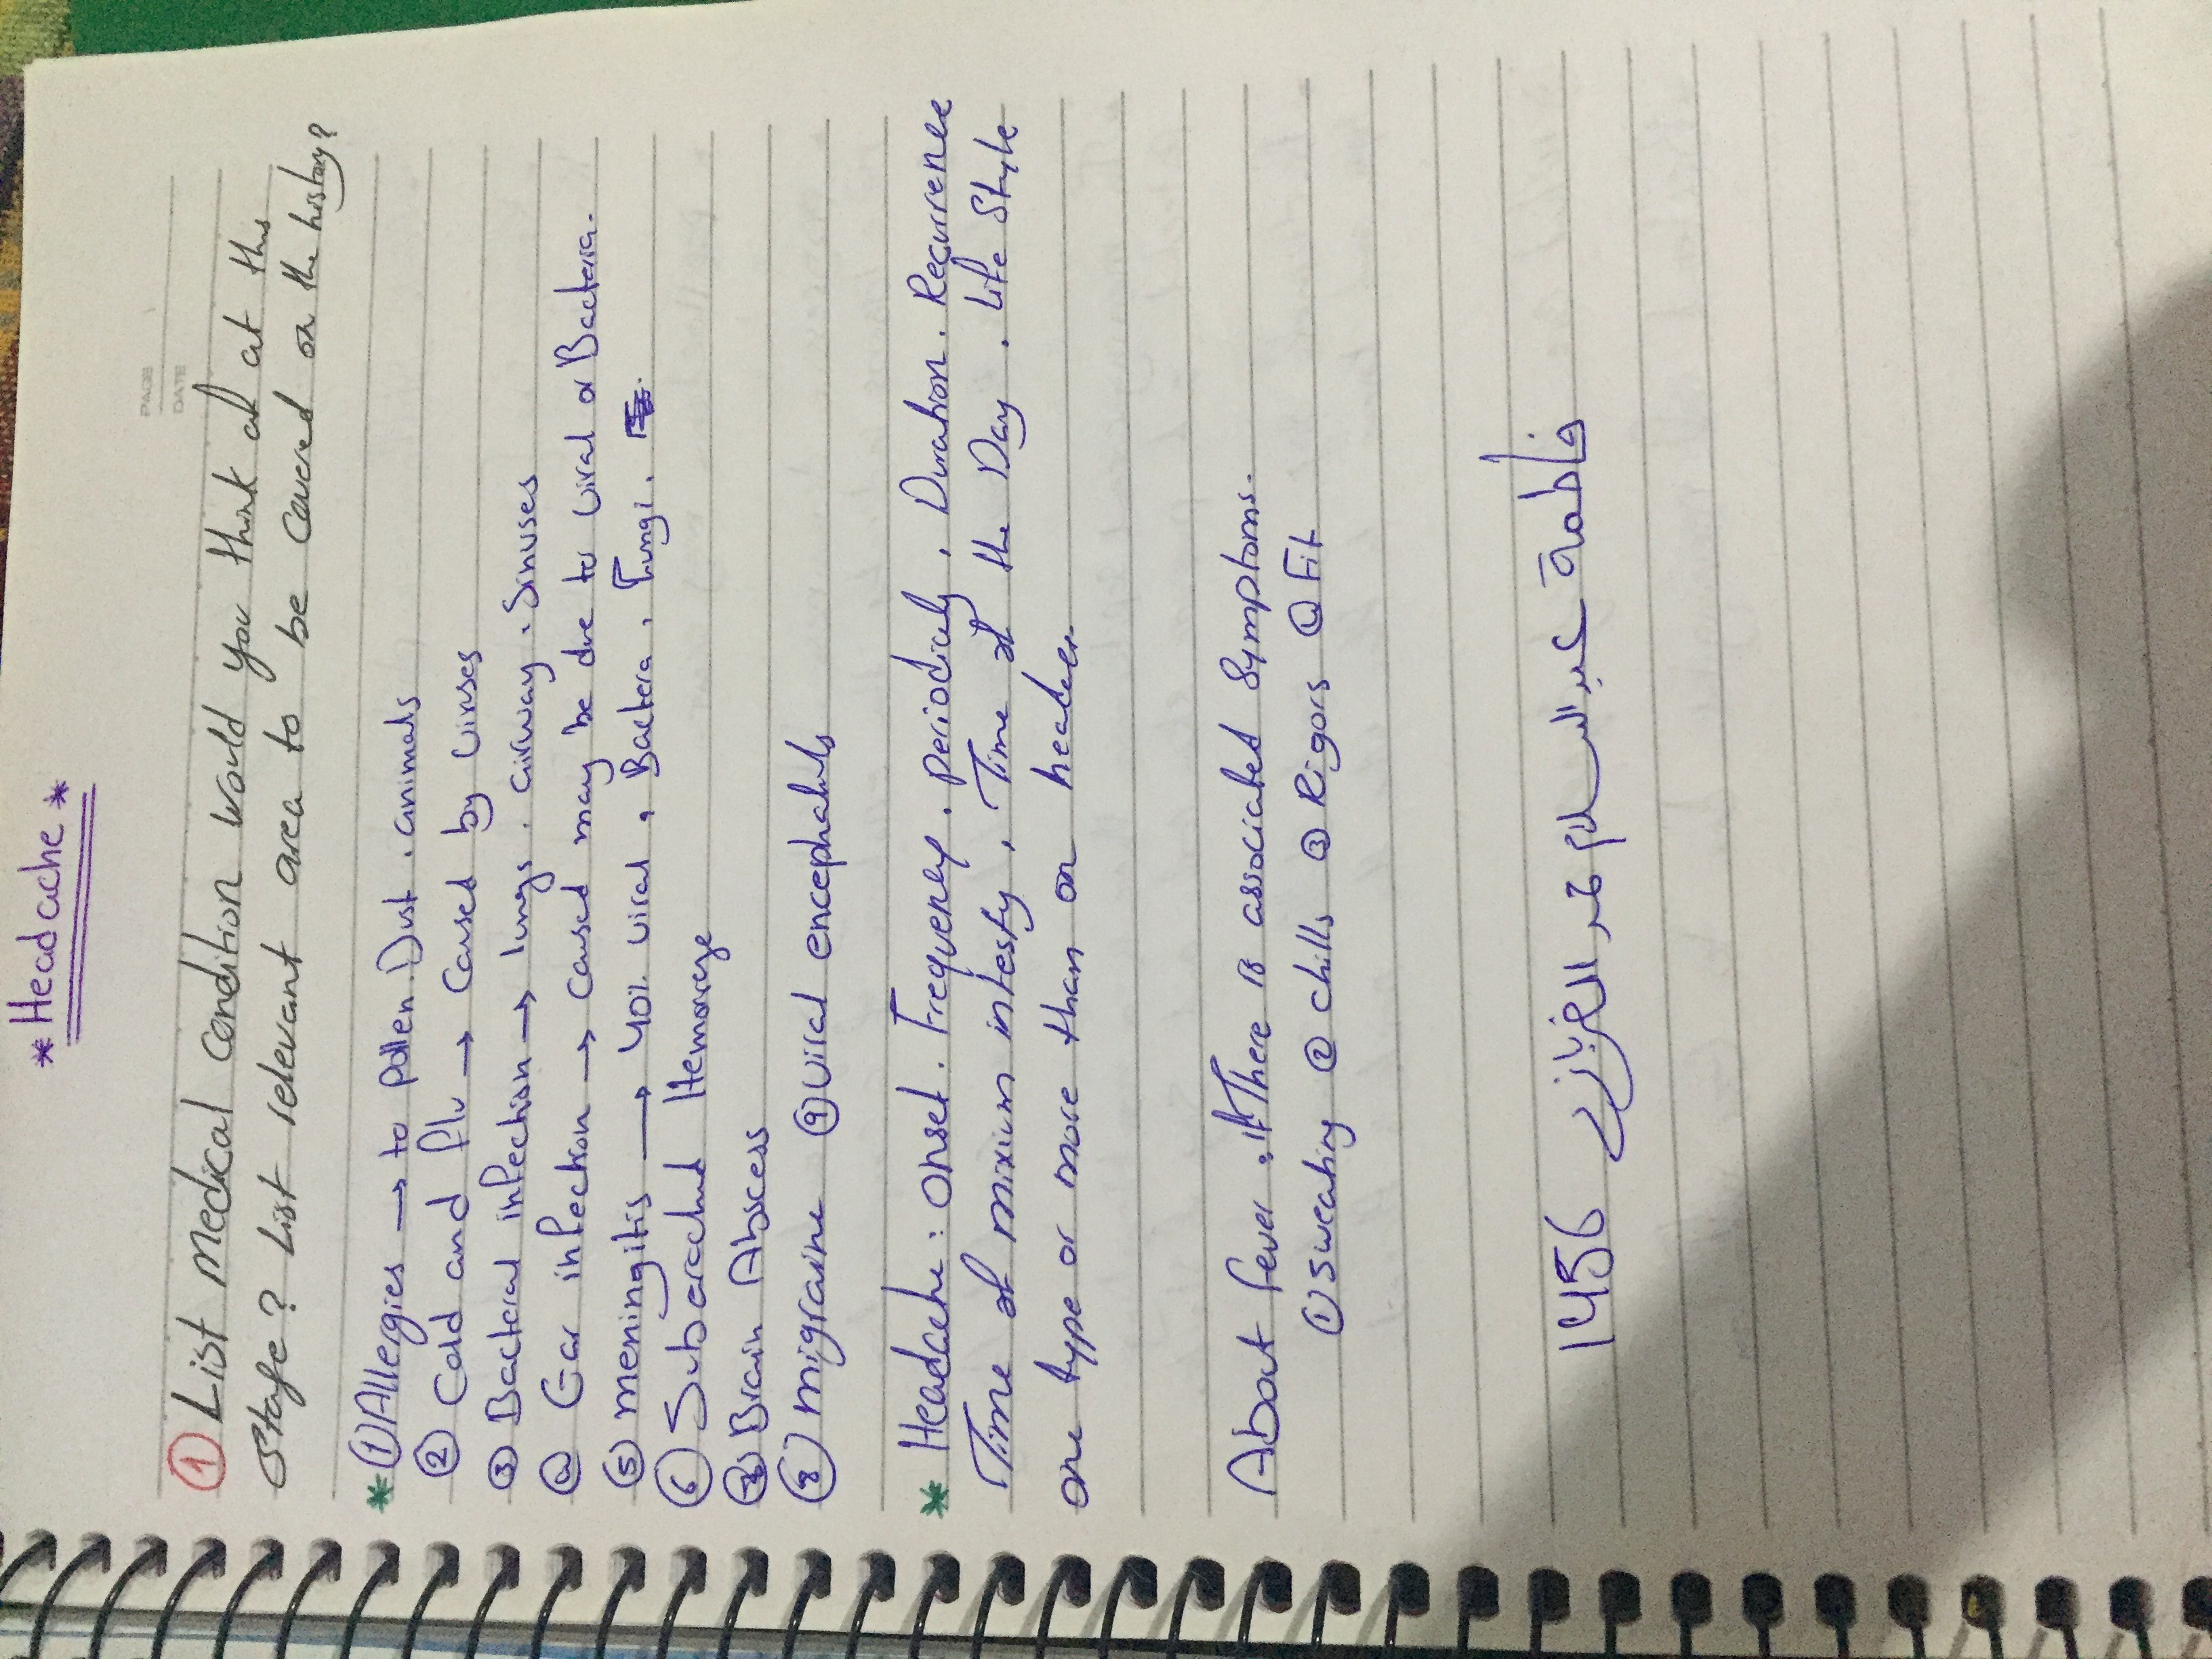 * Headache *
PAGE
DATE
① List medical condition would you think of at this
stage? List relevant area to be covered on the history?
* ① Allergies → to pollen. Dust. animals
② Cold and flu → Caused by viruses
③ Bacterial infection → lungs. airway. Sinuses
④ Ear infection → caused may be due to viral or Bacteria.
⑤ meningitis → 40% viral, Bactera, Fungi.
⑥ Subarachnd Hemorrage
⑦ Brain Abscess
⑧ migraine ⑨ viral encephalits
* Headache: onset. Frequency. periodicly, Duration. Recurrence
Time of mixium intesty, Time of the Day. Life Style
one type or more than on headec.
About fever, if There is associated Symptoms.
① sweating ② chills ③ Rigors ④ Fit
1456 فاطمة عبد السلام الغرياني